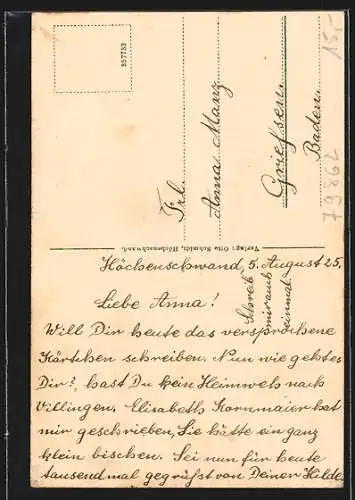 357753
15,-
Frl.
Anna Manz
Grießen
Baden.
79862
Verlag: Otto Schmidt, Höchenschwand.
Höchenschwand, 5. August 25.
Schreib
mir auch
einmal
Liebe Anna!
Will Dir heute das versprochene
Kärtchen schreiben. Nun wie geht es
Dir?, hast Du kein Heimweh nach
Villingen. Elisabeth Kornmaier hat
mir geschrieben, Sie hätte ein ganz
klein bischen. Sei nun für heute
tausendmal gegrüßt von Deiner Hilde.